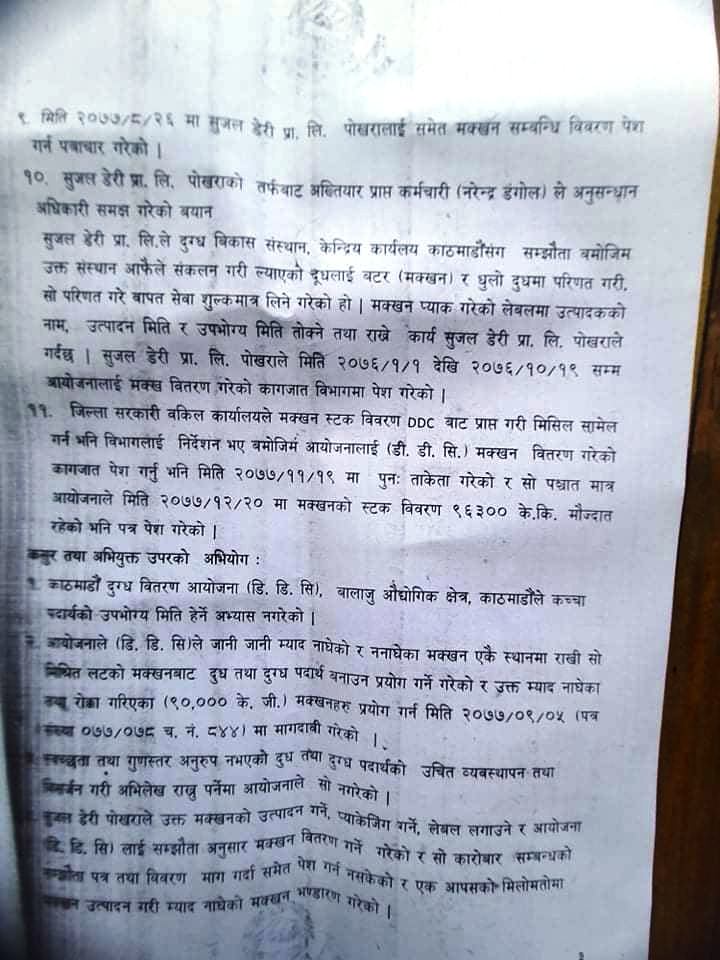 ९. मिति २०७७/८/२६ मा सुजल डेरी प्रा. लि. पोखरालाई समेत मक्खन सम्बन्धि विवरण पेश
गर्न पत्राचार गरेको |
१०. सुजल डेरी प्रा. लि. पोखराको तर्फबाट अख्तियार प्राप्त कर्मचारी (नरेन्द्र डंगोल) ले अनुसन्धान
अधिकारी समक्ष गरेको बयान
सुजल डेरी प्रा. लि.ले दुग्ध बिकास संस्थान, केन्द्रिय कार्यलय काठमाडौंसंग सम्झौता बमोजिम
उक्त संस्थान आफैले संकलन गरी ल्याएको दूधलाई बटर (मक्खन) र धुलो दुधमा परिणत गरी,
सो परिणत गरे बापत सेवा शुल्कमात्र लिने गरेको हो | मक्खन प्याक गरेको लेबलमा उत्पादकको
नाम, उत्पादन मिति र उपभोग्य मिति तोक्ने तथा राख्ने कार्य सुजल डेरी प्रा. लि. पोखराले
गर्दछ | सुजल डेरी प्रा. लि. पोखराले मिति २०७६/१/१ देखि २०७६/१०/१९ सम्म
आयोजनालाई मक्ख वितरण गरेको कागजात विभागमा पेश गरेको |
११. जिल्ला सरकारी वकिल कार्यालयले मक्खन स्टक विवरण DDC बाट प्राप्त गरी मिसिल सामेल
गर्न भनि विभागलाई निर्देशन भए बमोजिम आयोजनालाई (डी. डी. सि.) मक्खन वितरण गरेको
कागजात पेश गर्नु भनि मिति २०७७/११/१९ मा पुनः ताकेता गरेको र सो पश्चात मात्र
आयोजनाले मिति २०७७/१२/२० मा मक्खनको स्टक विवरण ९६३०० के.कि. मौज्दात
रहेको भनि पत्र पेश गरेको |
कसुर तथा अभियुक्त उपरको अभियोग :
१. काठमाडौं दुग्ध वितरण आयोजना (डि. डि. सि), बालाजु औद्योगिक क्षेत्र, काठमाडौंले कच्चा
पदार्थको उपभोग्य मिति हेर्ने अभ्यास नगरेको |
आयोजनाले (डि. डि. सि)ले जानी जानी म्याद नाघेको र ननाघेका मक्खन एकै स्थानमा राखी सो
मिश्रित लटको मक्खनबाट दुध तथा दुग्ध पदार्थ बनाउन प्रयोग गर्ने गरेको र उक्त म्याद नाघेका
रोक्का गरिएका (९०,००० के. जी.) मक्खनहरु प्रयोग गर्न मिति २०७७/०९/०५ (पत्र
संख्या ०७७/०७८ च. नं. ८४४) मा मागदाबी गरेको |
स्वच्छता तथा गुणस्तर अनुरुप नभएको दुध तथा दुग्ध पदार्थको उचित व्यवस्थापन तथा
बिसर्जन गरी अभिलेख राख्नु पर्नेमा आयोजनाले सो नगरेको |
सुजल डेरी पोखराले उक्त मक्खनको उत्पादन गर्ने, प्याकेजिंग गर्ने, लेबल लगाउने र आयोजना
(डि. डि. सि) लाई सम्झौता अनुसार मक्खन वितरण गर्ने गरेको र सो कारोबार सम्बन्धको
सम्झौता पत्र तथा विवरण माग गर्दा समेत पेश गर्न नसकेको र एक आपसको मिलोमतोमा
मक्खन उत्पादन गरी म्याद नाघेको मक्खन भण्डारण गरेको |